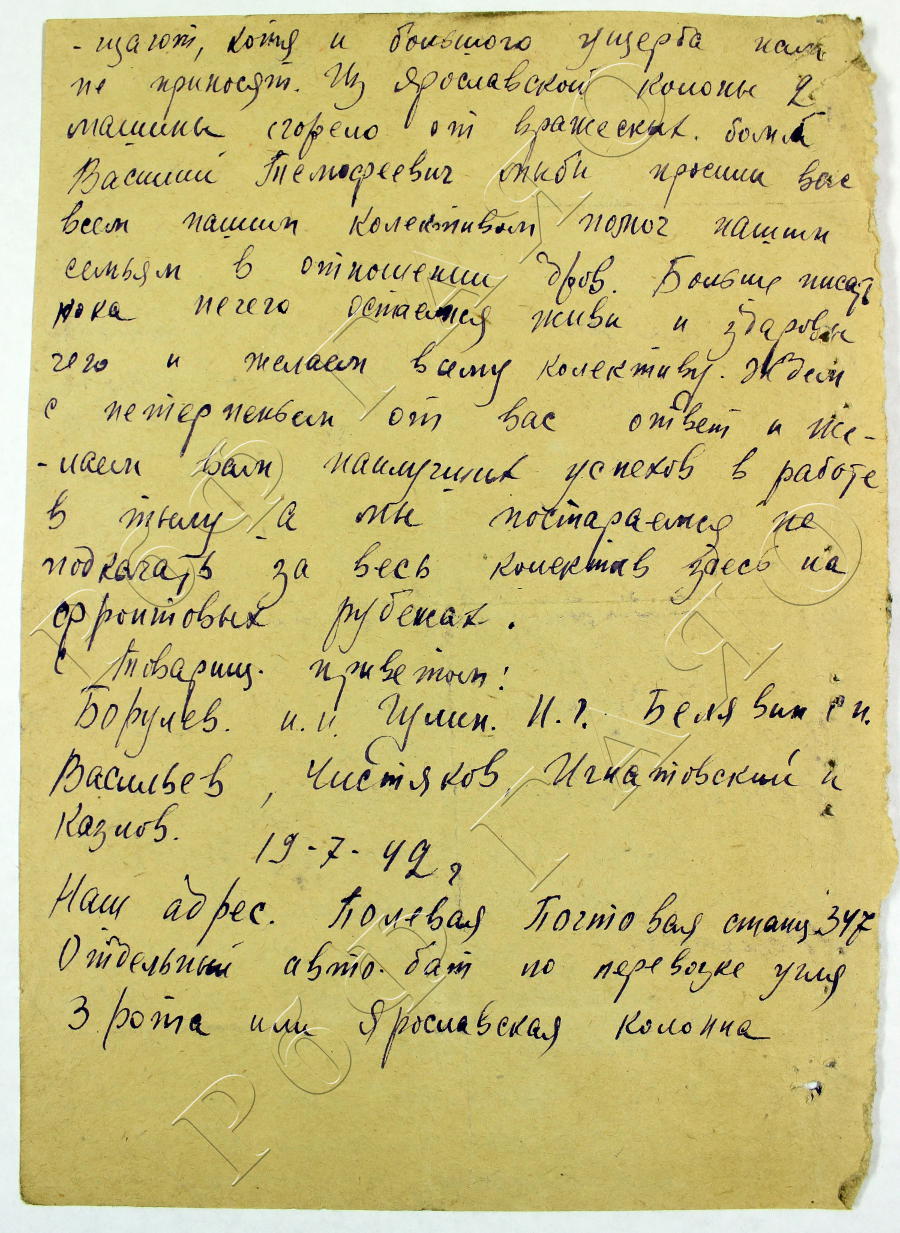 -щают, хотя и большого ущерба нам
не приносят. Из Ярославской колоны 2
машины сгорело от вражеских. бомб
Василий Темофеевич мыби просили вас
всем нашим колективом помоч нашим
семьям в отношении дров. Больше писать
пока нечего остаемся живы и здаровы
чего и желаем всему колективу. Ждем
с нетерпеньем от вас ответ и же-
-лаем вам наилучших успехов в работе
в тылу а мы постараемся не
подкачать за весь колектив здесь на
фронтовых рубежах.
с Товарищ. приветом!
Борулев. и.и. Гулин. Н.г. Белявин г н.
Васильев, Чистяков, Игнатовский и
Казлов.
19-7-42 г
Наш адрес. Полевая Почтовая станц. 347
Отдельный авто. бат по перевозке угля
3 рота или Ярославская колонна
РФ ГАЯО
РФ ГАЯО
РФ